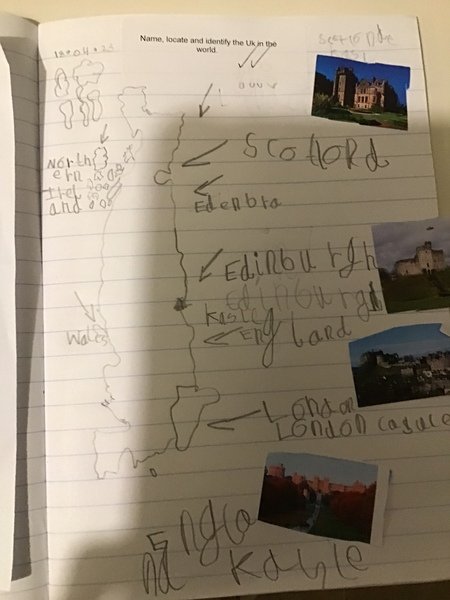 Name, locate and identify the Uk in the
world.
Scotlord
North
ern
Irel
and
Edenbra
Edinburgh
Edinburgh
Kasle
England
Wales
London
London casule
Engla
nd
Kasle